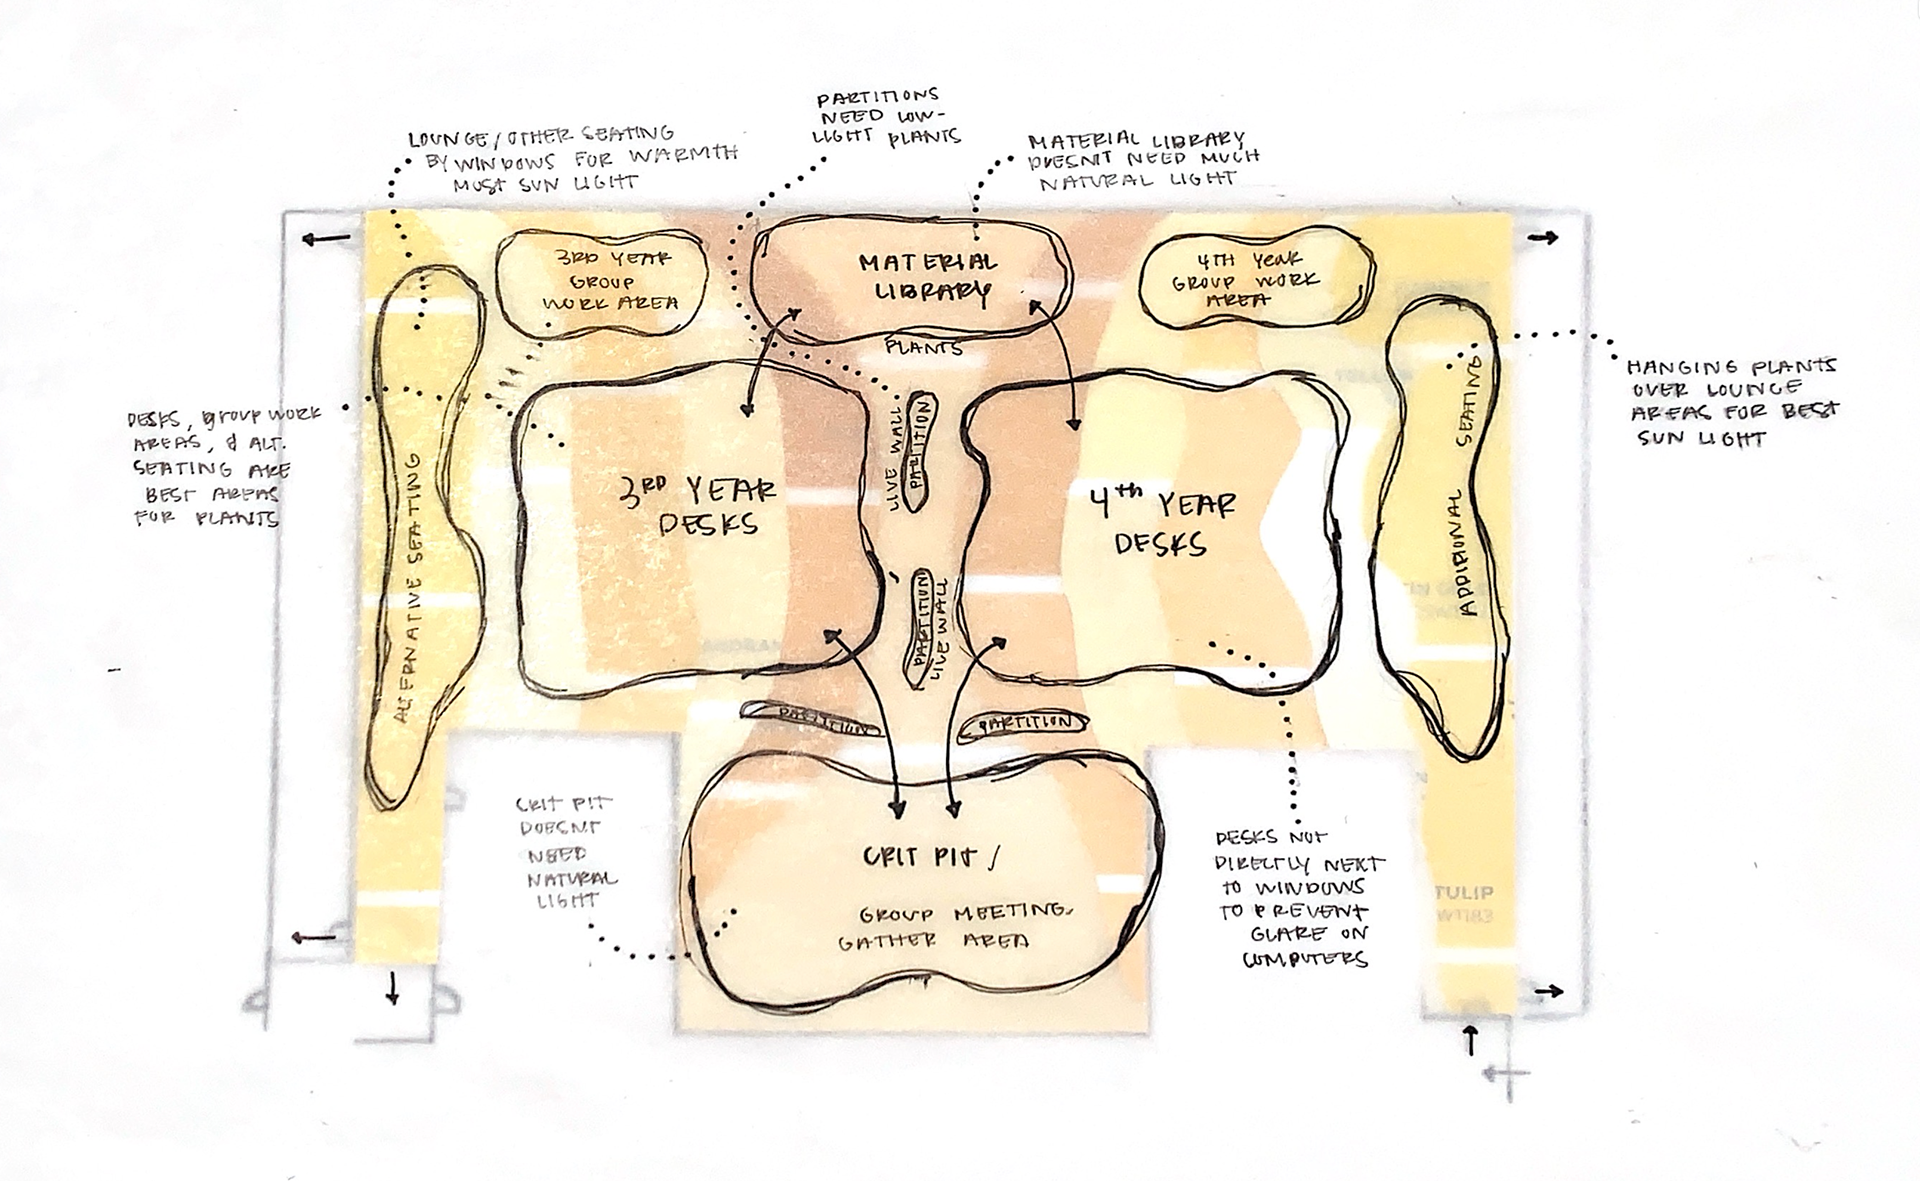 PARTITIONS
NEED LOW-
LIGHT PLANTS
LOUNGE/OTHER SEATING
BY WINDOWS FOR WARMTH
MOST SUN LIGHT
MATERIAL LIBRARY
DOESN'T NEED MUCH
NATURAL LIGHT
3RD YEAR
GROUP
WORK AREA
MATERIAL
LIBRARY
4TH YEAR
GROUP WORK
AREA
PLANTS
HANGING PLANTS
OVER LOUNGE
AREAS FOR BEST
SUN LIGHT
DESKS, group work
AREAS, & ALT.
SEATING ARE
BEST AREAS
FOR PLANTS
ALTERNATIVE SEATING
3RD YEAR
DESKS
LIVE WALL
PARTITION
PARTITION
LIVE WALL
4th YEAR
DESKS
ADDITIONAL SEATING
PARTITION
PARTITION
CRIT PIT
DOESNT
NEED
NATURAL
LIGHT
CRIT PIT /
GROUP MEETING,
GATHER AREA
DESKS NOT
DIRECTLY NEXT
TO WINDOWS
TO PREVENT
GLARE ON
COMPUTERS
TULIP